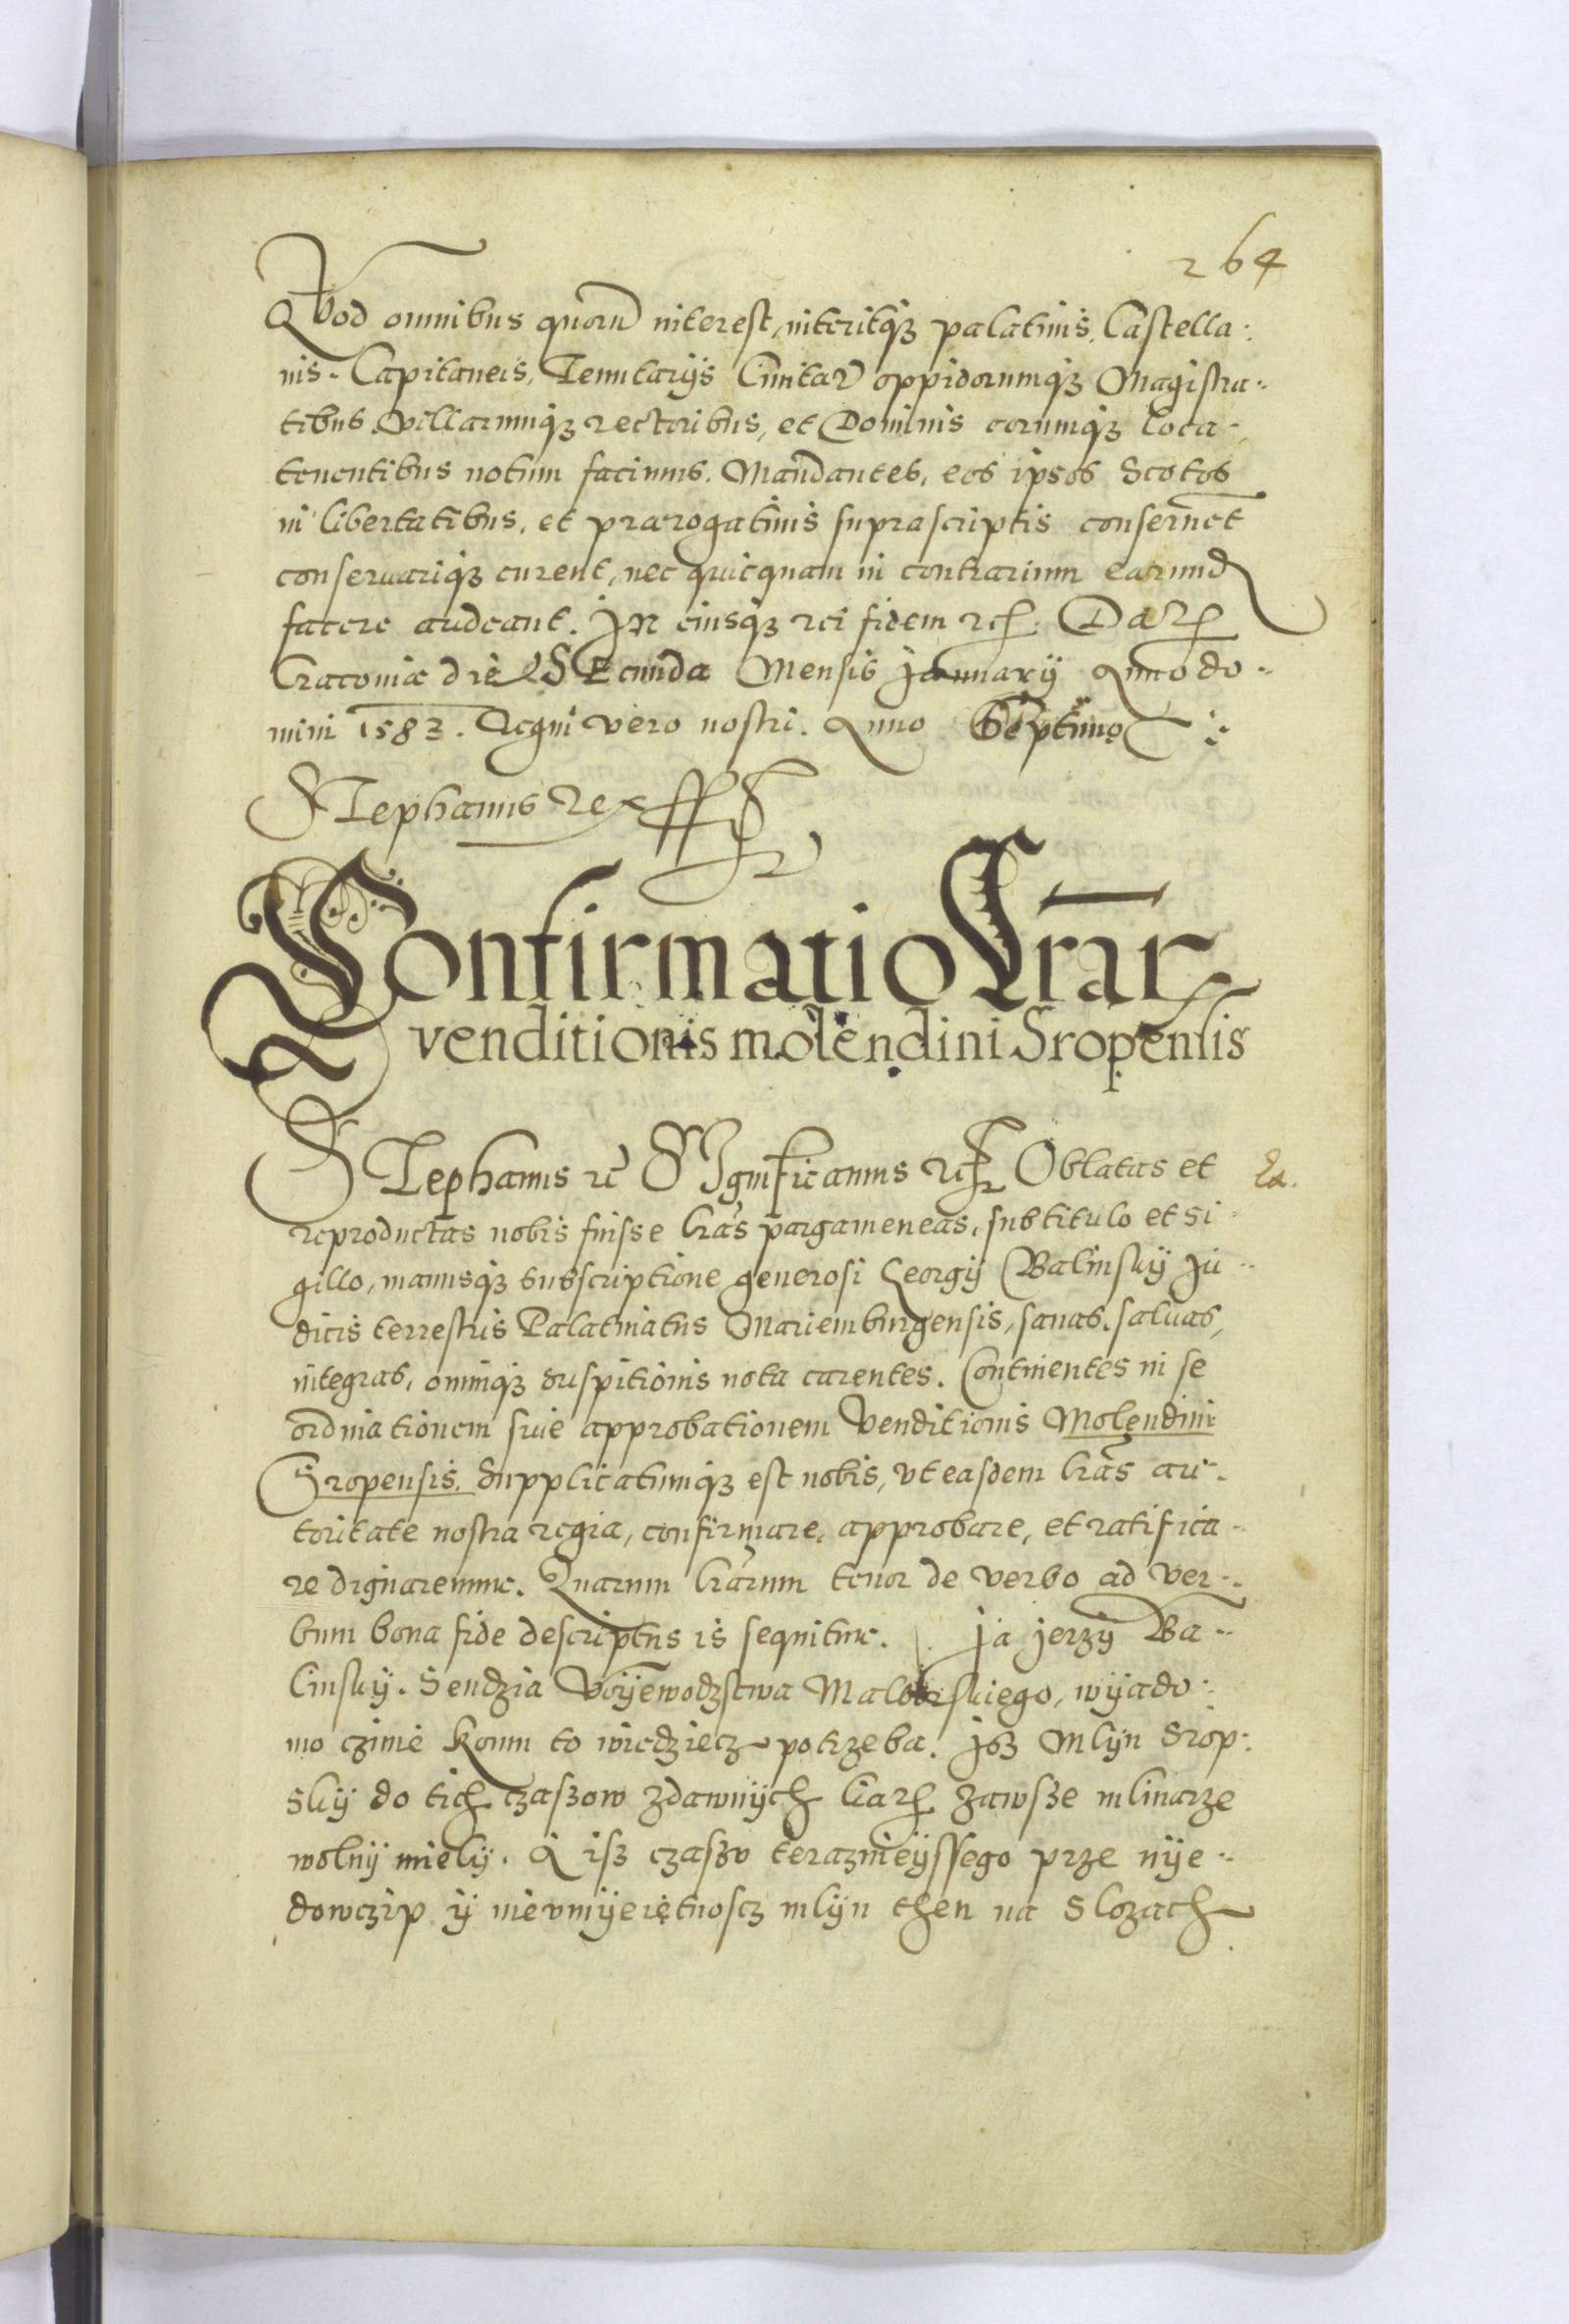 264
Quod omnibus quoru interest, interitq3 palatinis, Castella:
nis. Capitaneis, Tenutarijs Ciuitatu oppidorumq3 Magistra-
tibus Villarumq3 rectoribus, et Dominis eorumq3 loca-
tenentibus notum facimus. Mandantes, eos ipsos Scotos
in libertatibus, et prærogatiuis suprascriptis conseruet
conseruariq3 curent, nec quicquam in contrarium earund
facere audeant. In eiusq3 rei fidem etc. Dat
Cracouiæ die Secunda Mensis January Anno do-
mini 1583. Regni vero nostri. Anno Septimo
Stephanus Rex
Confirmatio Lrar
venditionis molendini Sropensis
Stephanus etc Significamus etc Oblatas et
reproductas nobis fuisse lras pargameneas, subtitulo et si
gillo, manusq3 subscriptione generosi Georgij Balinskij Ju-
dicis terrestris Palatinatus Mariemburgensis, sanas, saluas,
integras, omniq3 suspitionis nota carentes. Continentes in se
ordinationem siue approbationem Venditionis Molendini
Sropensis. Supplicatumq3 est nobis, vt easdem lras au-
toritate nostra regia, confirmare, approbare, et ratifica-
re dignaremur. Quarum lrarum tenor de verbo ad ver-
bum bona fide descriptus is sequitur. Ja jerzÿ Ba-
linskÿ. Sendzia Voÿewodzstwa Malborskiego, wÿado:
mo czinie komu to wiedziecz potrzeba. Js3 Mlÿn Srop:
skÿ do tich czaszow zdawnÿch liat zawsze mlinarze
wolnÿ mielÿ. A isz czaszv teraznieÿssego prze nÿe-
dowczip ÿ nievmÿeiętnoscz mlÿn then na Slozach